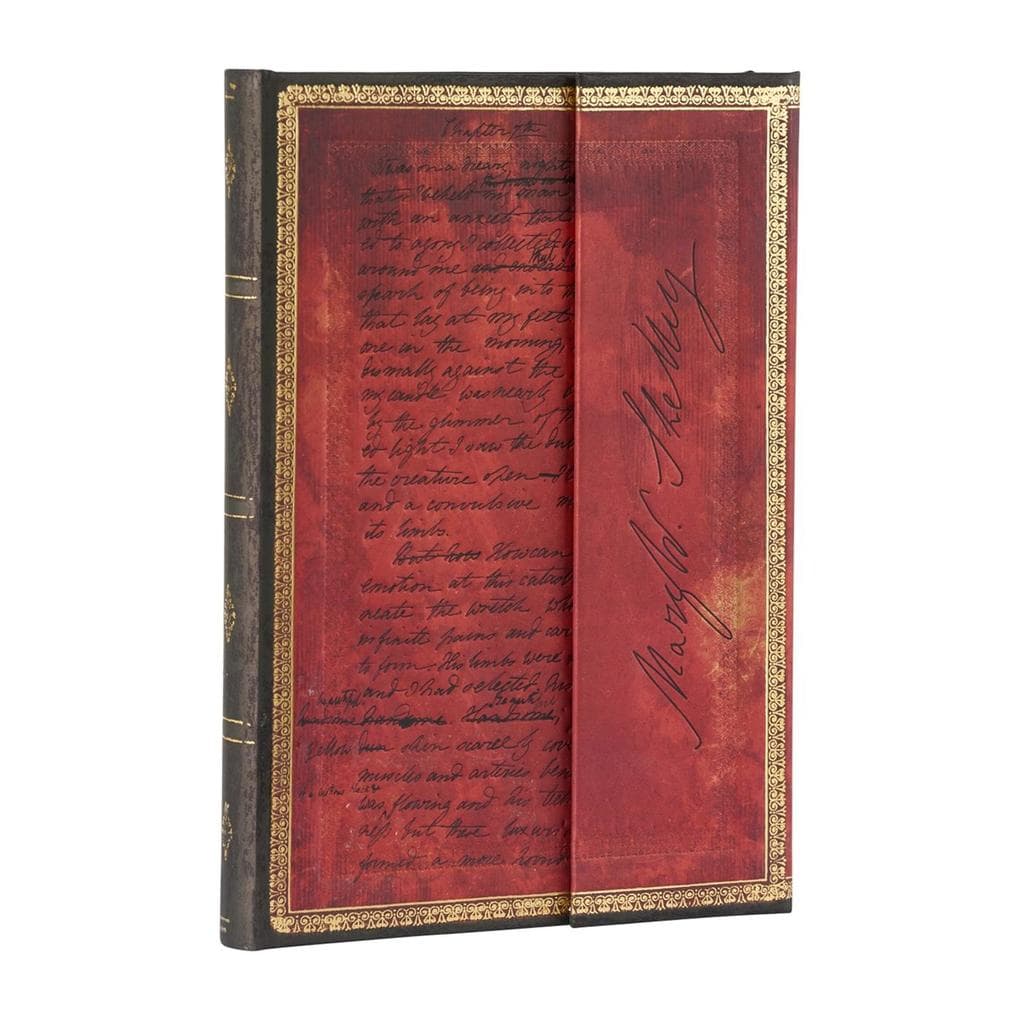 Chapter 7th
It was on a dreary night
that I beheld my man
with an anxiety that
ed to agony I collected
around me and endeavour that
spark of being into
that lay at my feet
one in the morning,
dismally against the
my candle was nearly
by the glimmer of
ed light I saw the dul
the creature open
and a convulsive
its limbs.
But how How can
emotion at this catast
neate the wretch who
infinite pains and car
to form. His limbs were
and I had selected his
beautiful
handsome handsome. Handsome;
yellow dun skin scarcely cov
muscles and arteries ben
was flowing and his teet
ness but these luxuri
formed a more horrid
Mary W. Shelley